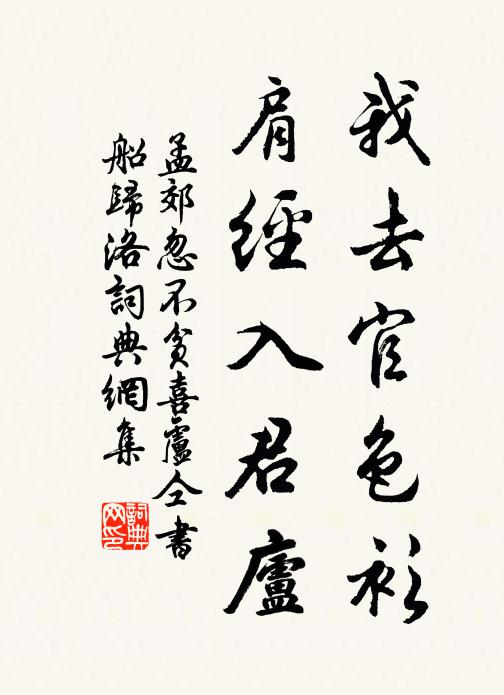 我去官色衫
肩經入君廬
孟郊忽不貧喜盧仝書
船歸洛詞典網集
詞典
网印